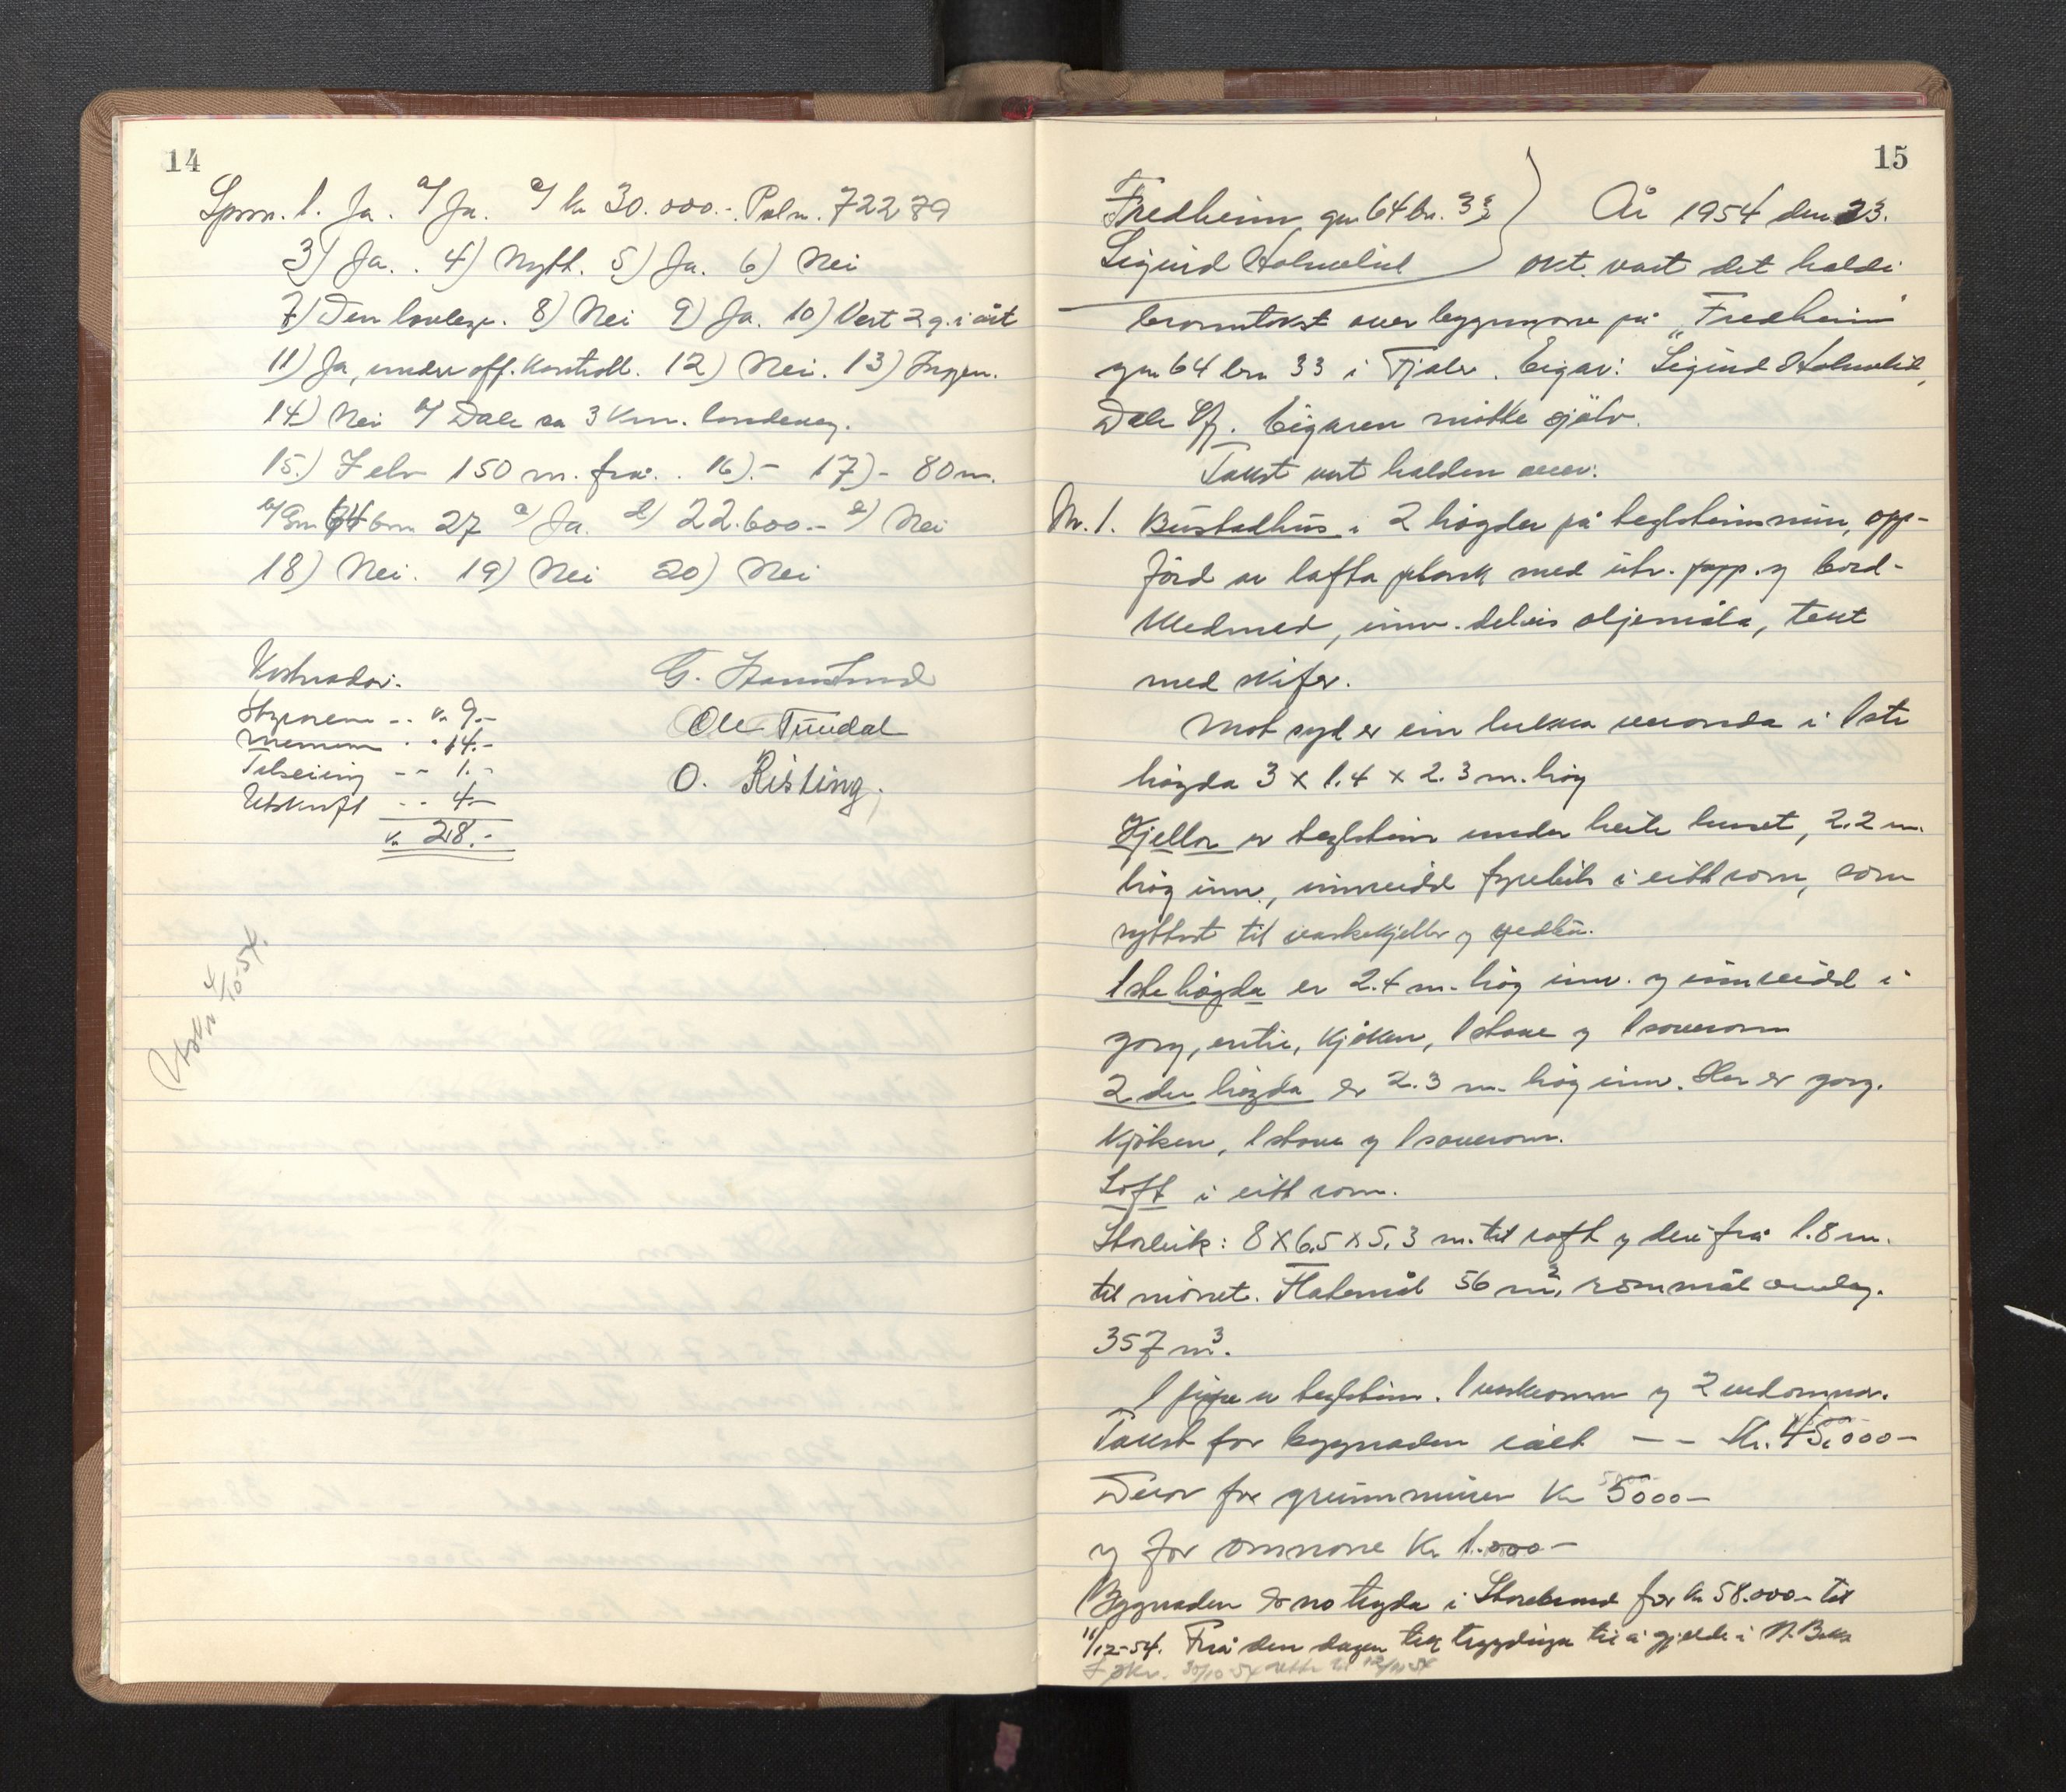 14
Spm. 1. Ja. a/ Ja. c/ kr 30.000.- Pol.n. 72279
3) Ja. . 4) Nytt. 5) Ja. 6) Nei
7) Den lovlege. 8) Nei 9) Ja. 10) Vert 2 g. i året
11) Ja, under off. kontroll. 12) Nei. 13) Ingen.
14) Nei a/ Dale ca 3 km. landeveg.
15.) I elv 150 m. frå. . 16).- 17)- 80 m.
b/ Gm 64 brn 27 c/ Ja. d/ 22.600.- e/ Nei
18) Nei. 19) Nei 20) Nei
Kostnader:
Styraren - - kr 9.-
Mennene - - 14.-
Tilseiing - - 1.-
Utskrift - - 4.-
kr 28.-
G. Hamlund
Ole Tundal
O. Risting.
Utskr 4/10-54.
15
Fredheim gm 64 br. 33
Sigurd Holmelid
År 1954 den 23.
okt. vart det halde
branntakst over bygningane på "Fredheim"
gm 64 brn 33 i Fjaler. Eigar: Sigurd Holmelid,
Dale Sfj. Eigaren møtte sjølv.
Takst vert halden over:
Nr. 1. Bustadhus i 2 høgder på teglsteinsmur, opp-
förd av lafta plank med utv. papp og bord-
kledned, innv. delvis oljemåla, tekt
med skifer.
Mot syd er ein lukka veranda i 1ste
høgda 3 x 1.4 x 2.3 m. høg
Kjellar av teglstein under heile huset, 2.2 m.
høg innv., innreidd fyrebils i eitt rom, som
nyttast til vaskekjeller og vedbu.
1ste høgda er 2.4 m. høg innv. og innreidd i
gang, entré, kjøken, 1 stove og 1 soverom
2dre høgda er 2.3 m. høg innv. Her er gang.
Kjøken, 1 stove og 1 soverom.
Loft i eitt rom.
Storleik: 8 x 6,5 x 5,3 m. til raft og derifrå 1.8 m.
til mönet. Flatemål 56 m², rommål omlag.
357 m³.
1 pipe av teglstein. 1 vaskeomn og 2 vedomnar.
Takst for bygnaden ialt - - Kr. 45.000-
Derav for grunnmuren Kr 5000-
og for omnane Kr 1.000-
Bygnaden er no trygda i Storebrand for kr 58.000- til
11/12-54. Frå den dagen tek trygdinga til å gjelde i N. Br.k.
30/10-54